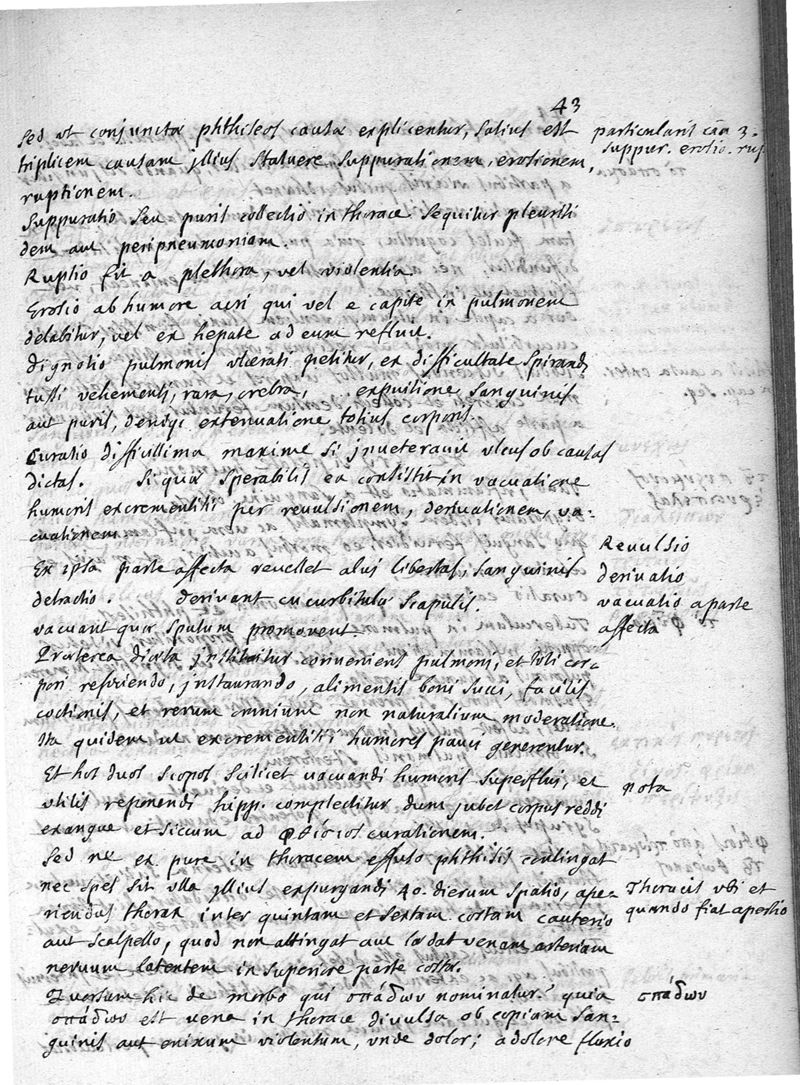 43
Sed ut conjunctæ phthiseos causæ explicentur, satius est
triplicem causam illius statuere suppurationem, erotionem,
ruptionem.
particularis cãa 3.
suppur. erosio. rup
Suppuratio seu puris collectio in thorace sequitur pleuriti
dem aut peripneumoniam.
Ruptio fit a plethora, vel violentia
Erosio ab humore acri qui vel e capite in pulmonem
delabitur, vel ex hepate ad eum refluit.
dignotio pulmonis ulcerati petitur, ex difficultate spirandi
tussi vehementi, rara, crebra, expuitione sanguinis
aut puris, deniq; extenuatione totius corporis.
Curatio difficillima maxime si inveteravit ulcus ob causas
dictas. Si qua sperabilis ea consistit in vacuatione
humoris excrementitii per revulsionem, derivationem, va-
cuationem
Ex ipsa parte affecta revellet alvi libertas, sanguinis
detractio. derivant cucurbitulæ scapulis.
vacuant quæ sputum promovent
Revulsio
derivatio
vacuatio a parte
affecta
Præterea diæta instituitur conveniens pulmoni, et toti cor-
pori reficiendo, instaurando, alimentis boni succi, facilis
coctionis, et rerum omnium non naturalium moderatione.
Ita quidem ut excrementitii humores pauci generentur.
Et hos duos scopos scilicet vacuandi humoris superflui, et
utilis reponendi hipp. complectitur dum jubet corpus reddi
exangue et siccum ad φθίσιος curationem.
nota
Sed ne ex pure in thoracem effuso phthisis contingat
nec spes sit ulla illius expurgandi 40. dierum spatio, ape-
riendus thorax inter quintam et sextam costam cauterio
aut scalpello, quod non attingat aut lædat venam arteriam
nervum latentem in superiore parte costæ.
Thoracis ubi et
quando fiat apertio
Quorsum hic de morbo qui σπάδων nominatur? quia
σπάδων est vene in thorace divulsa ob copiam san-
guinis aut enixum violentum, unde dolor; a dolore fluxio
σπάδων